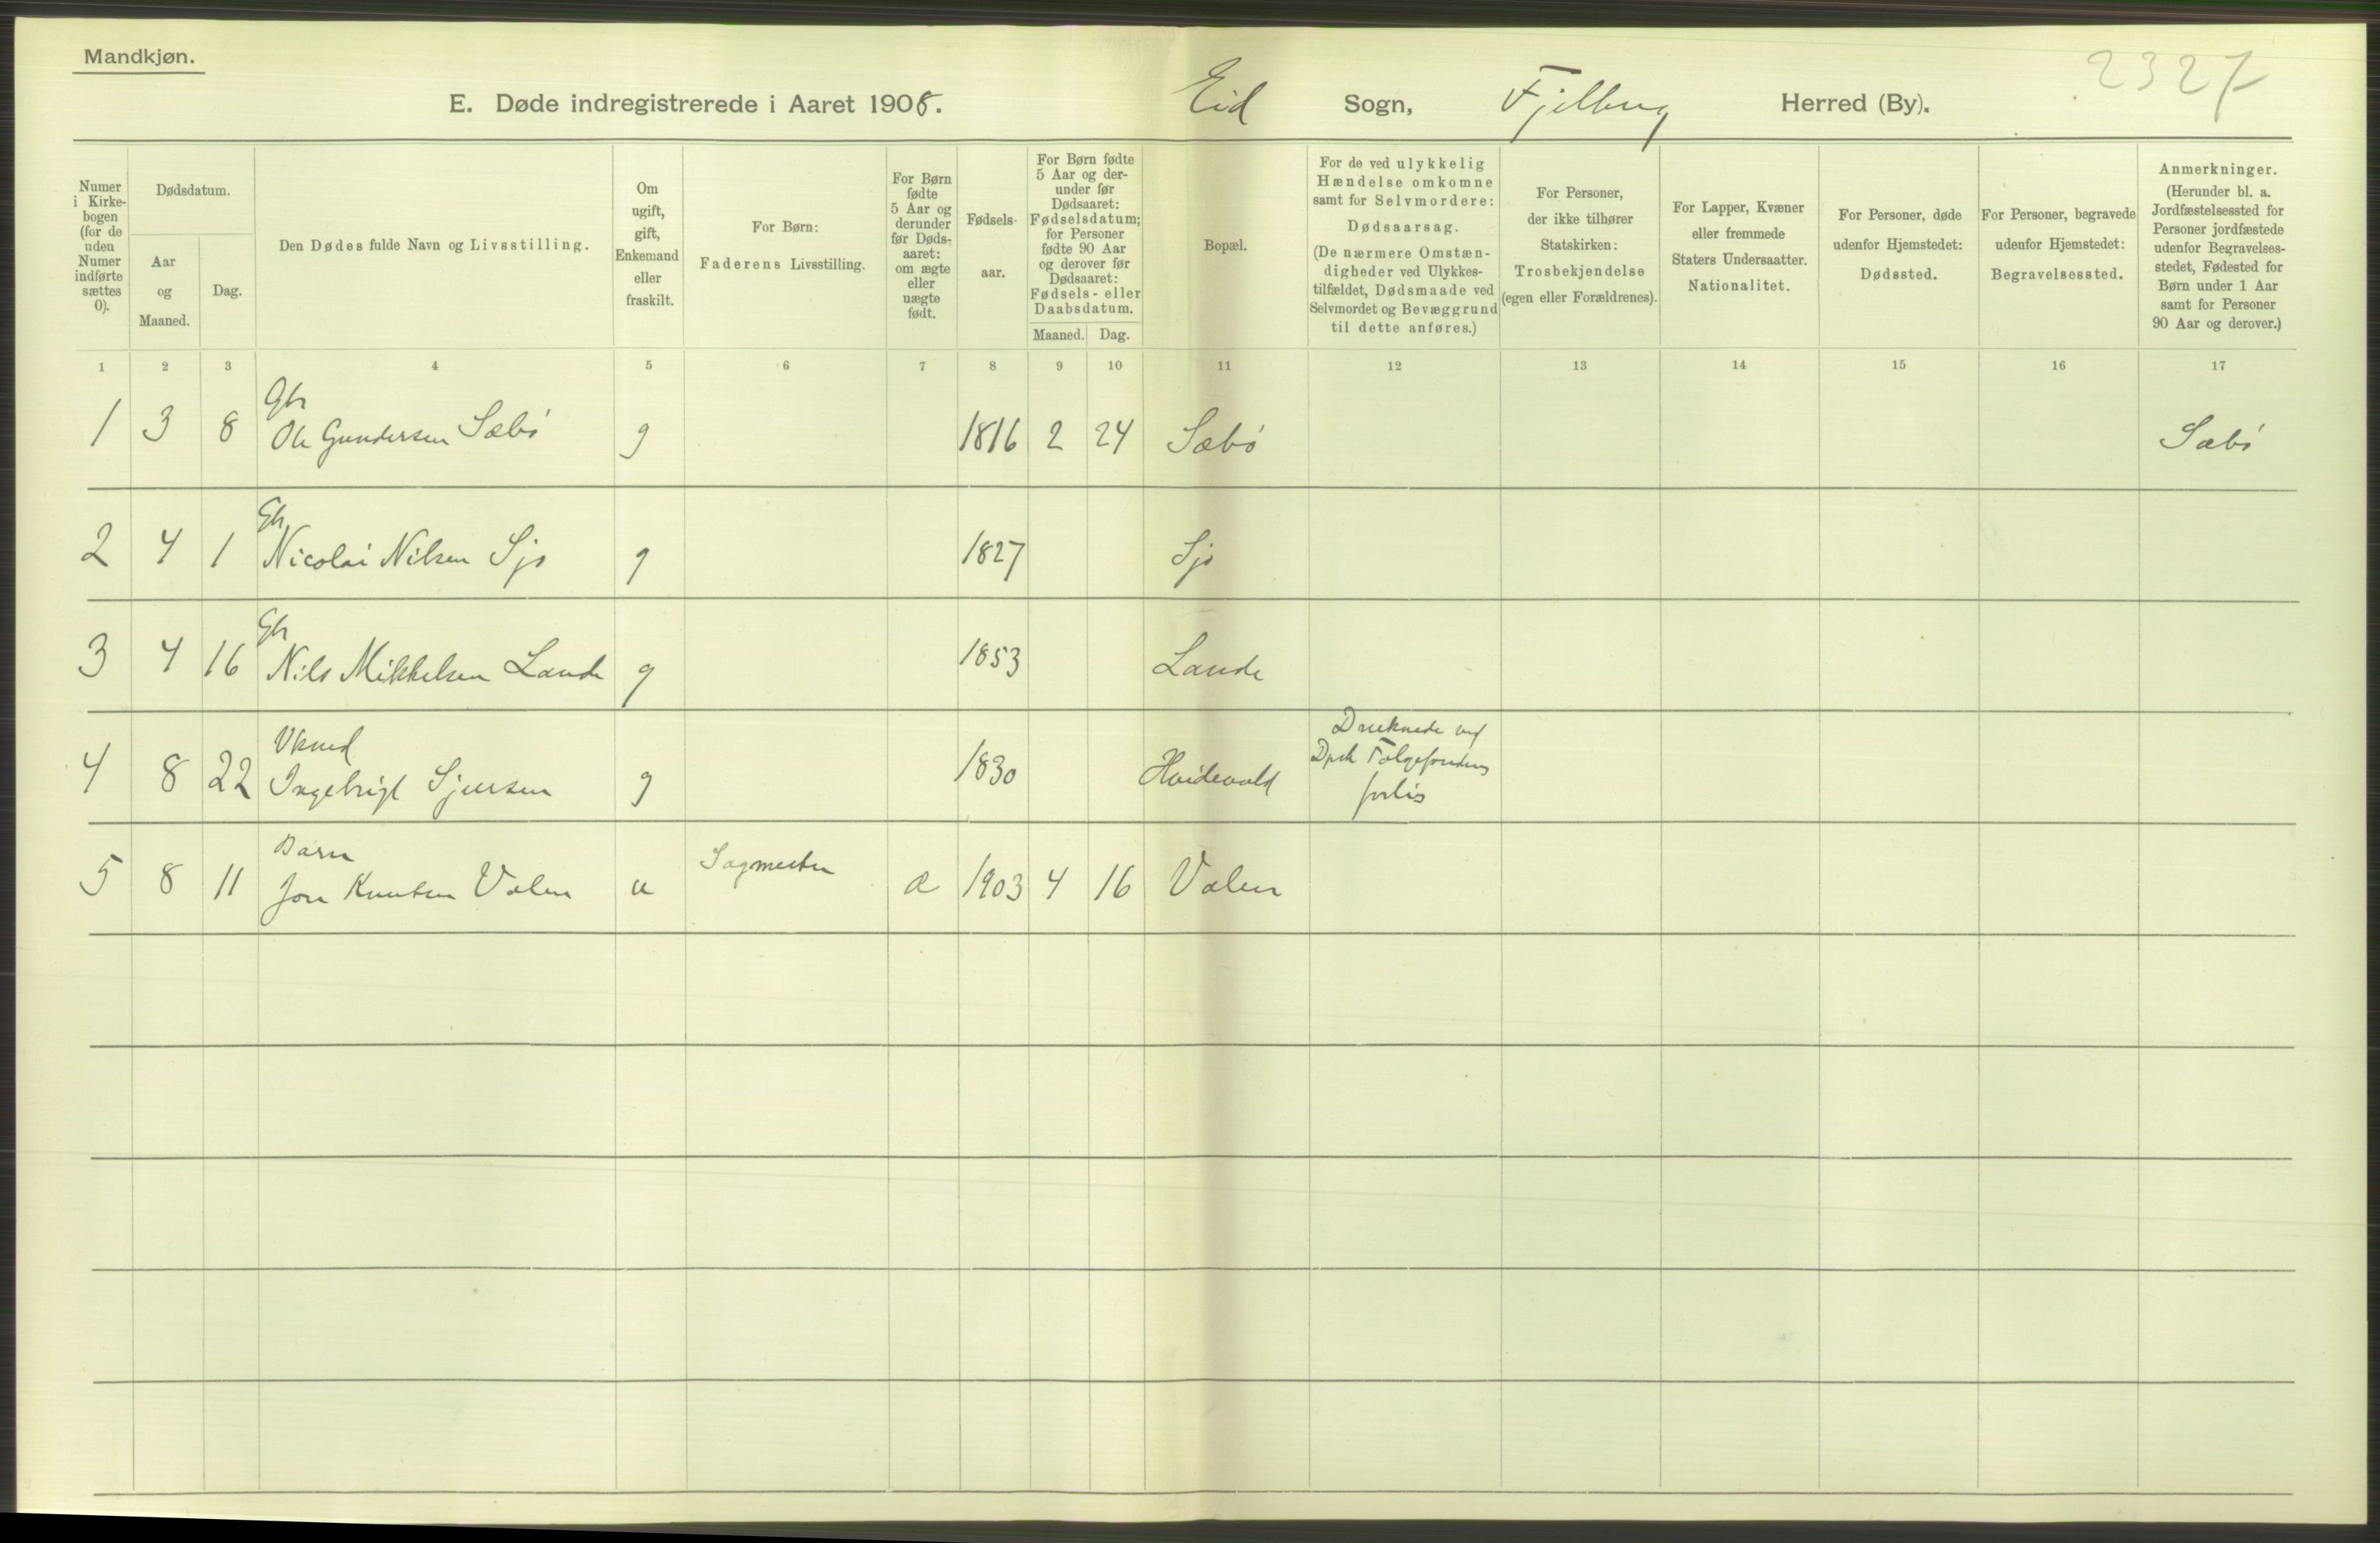 Mandkjøn.
2327
E. Døde indregistrerede i Aaret 1908. Eid Sogn, Fjelberg Herred (By).
Numer
i Kirke-
bogen
(for de
uden
Numer
indførte
sættes
0).
Dødsdatum.
Aar
og
Maaned.
Dag.
Den Dødes fulde Navn og Livsstilling.
Om
ugift,
gift,
Enkemand
eller
fraskilt.
For Børn:
Faderens Livsstilling.
For Børn
fødte
5 Aar og
derunder
før Døds-
aaret:
om ægte
eller
uægte
født.
Fødsels-
aar.
For Børn fødte
5 Aar og der-
under før
Dødsaaret:
Fødselsdatum;
for Personer
fødte 90 Aar
og derover før
Dødsaaret:
Fødsels- eller
Daabsdatum.
Maaned. Dag.
Bopæl.
For de ved ulykkelig
Hændelse omkomne
samt for Selvmordere:
Dødsaarsag.
(De nærmere Omstæn-
digheder ved Ulykkes-
tilfældet, Dødsmaade ved
Selvmordet og Bevæggrund
til dette anføres.)
For Personer,
der ikke tilhører
Statskirken:
Trosbekjendelse
(egen eller Forældrenes).
For Lapper, Kvæner
eller fremmede
Staters Undersaatter.
Nationalitet.
For Personer, døde
udenfor Hjemstedet:
Dødssted.
For Personer, begravede
udenfor Hjemstedet:
Begravelsessted.
Anmerkninger.
(Herunder bl. a.
Jordfæstelsessted for
Personer jordfæstede
udenfor Begravelses-
stedet, Fødested for
Børn under 1 Aar
samt for Personer
90 Aar og derover.)
1 2 3 4 5 6 7 8 9 10 11 12 13 14 15 16 17
Gbr
1 3 8 Ole Gundersen Sæbø g 1816 2 24 Sæbø Sæbø
Gbr
2 4 1 Nicolai Nilsen Sjo g 1827 Sjo
Gbr
3 4 16 Nils Mikkelsen Lande g 1853 Lande
Vkmd
4 8 22 Ingebrigt Sjursen g 1830 Hvidevold
Druknede ved
Dpsk Folgefondens
forlis
Barn
5 8 11 Jon Knutsen Valen u Sagmester a 1903 4 16 Valen